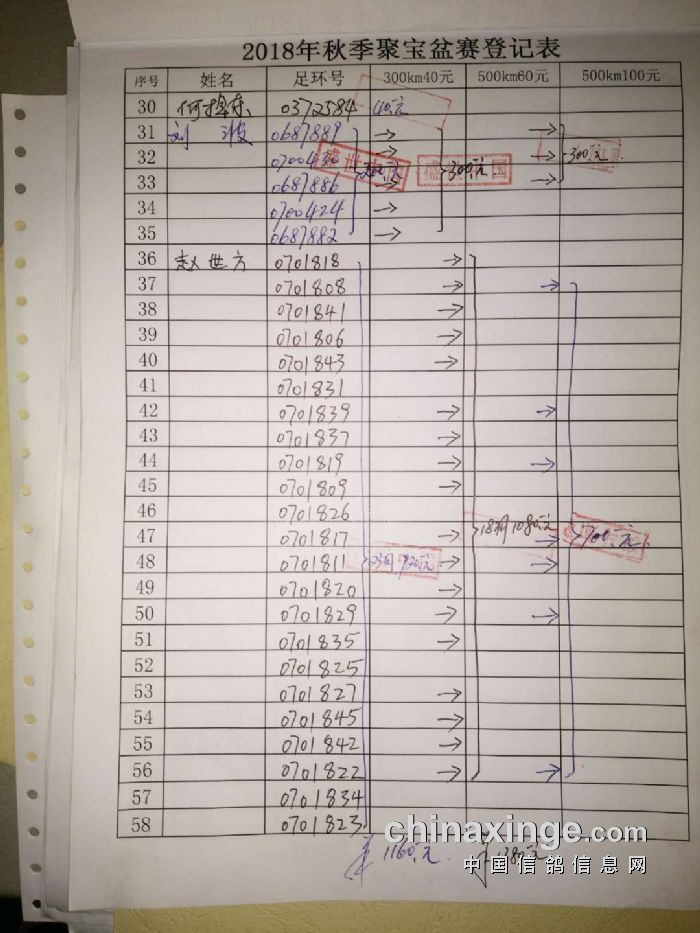 2018年秋季聚宝盆赛登记表
序号 姓名 足环号 300km40元 500km60元 500km100元
30 0372584 40元
31 刘 波 0687889 → →
32 0700430 200元 → 300元 → 300元
33 0687886 → →
34 0700424 →
35 0687882 →
36 赵世方 0701818 →
37 0701808 → →
38 0701841 →
39 0701806 →
40 0701843 →
41 0701831
42 0701839 → →
43 0701837 →
44 0701819 → →
45 0701809 →
46 0701826
47 0701817 → 18羽1080元 → 700元
48 0701811 23羽920元 → →
49 0701820 →
50 0701829 → →
51 0701835 →
52 0701825
53 0701827 →
54 0701845 →
55 0701842 →
56 0701822 → →
57 0701834
58 0701823
1160元 1380元
chinaxinge.com
中国信鸽信息网